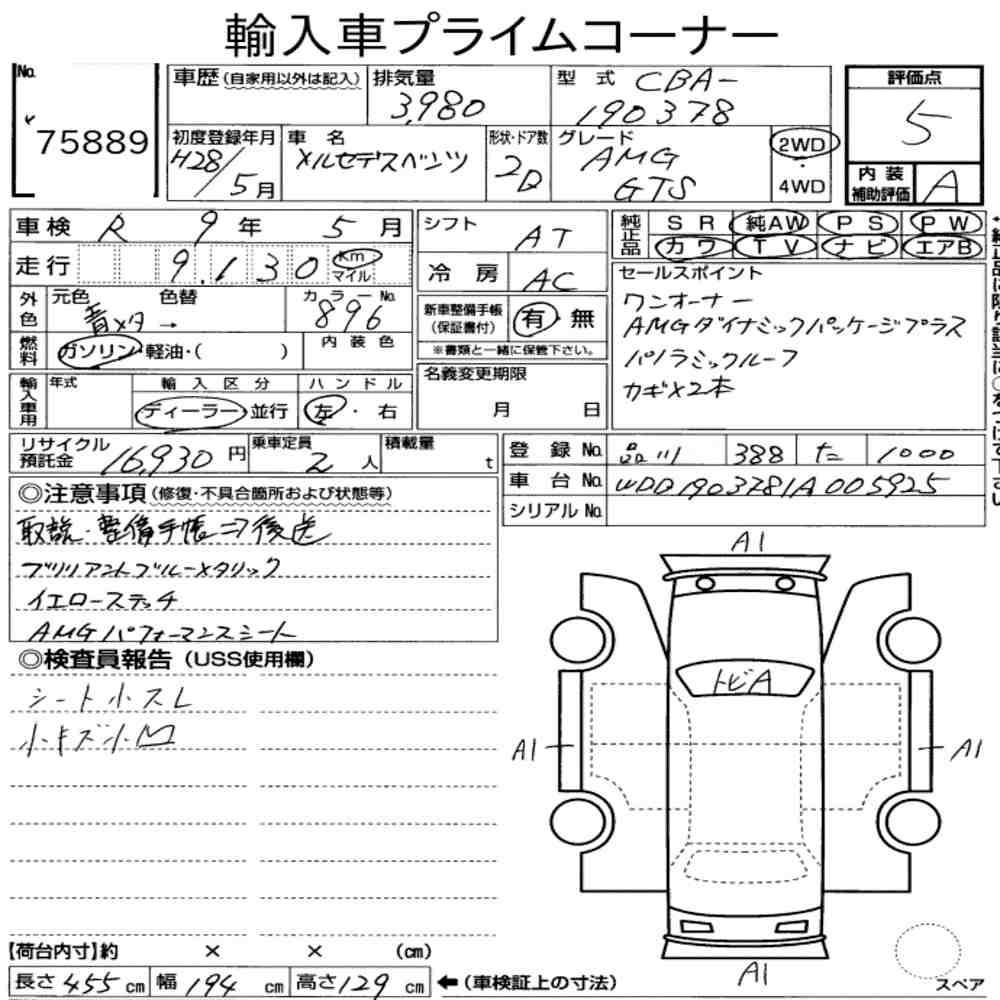 輸入車プライムコーナー
No.
75889
車歴 (自家用以外は記入)
排気量
3,980
型 式 CBA-
190378
初度登録年月
H28/5月
車 名
メルセデスベンツ
形状・ドア数
2D
グレード
AMG
GTS
2WD
・
4WD
評価点
5
内装
補助評価
A
車検 R 9年 5月
走行 9,130 Km
マイル
シフト AT
冷 房 AC
純正品
SR 純AW PS PW
カワ TV ナビ エアB
外色
元色
青メタ →
色替
カラーNo.
896
内装色
燃料
ガソリン・軽油・( )
新車整備手帳
(保証書付)
有・無
※書類と一緒に保管下さい。
セールスポイント
ワンオーナー
AMGダイナミックパッケージプラス
パノラミックルーフ
カギ×2本
輸入車用
年式
輸入区分
ディーラー・並行
ハンドル
左・右
名義変更期限
月 日
リサイクル
預託金 16,930円
乗車定員
2人
積載量
t
登 録 No. 品川 388 た 1000
車 台 No. WDD1903781A005925
シリアルNo.
◎注意事項 (修復・不具合箇所および状態等)
取説・整備手帳⇒後送
ブリリアントブルーメタリック
イエローステッチ
AMGパフォーマンスシート
◎検査員報告 (USS使用欄)
シート小スレ
小キズ小凹
A1
トビA
A1
A1
A1
スペア
【荷台内寸】約 × × (cm)
長さ 455 cm 幅 194 cm 高さ 129 cm ←(車検証上の寸法)